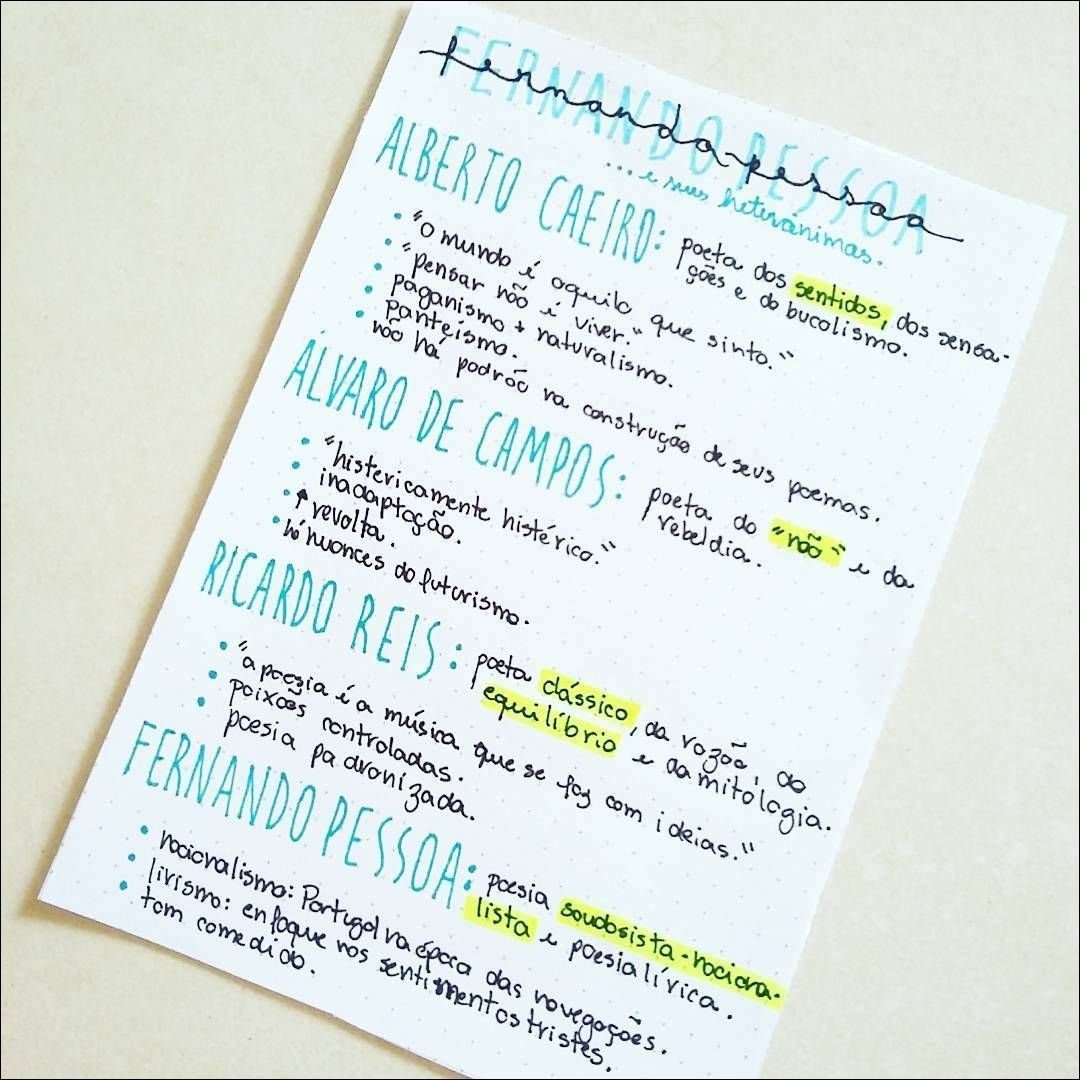 FERNANDO PESSOA
fernando pessoa
... e seus heterônimos.
ALBERTO CAEIRO: poeta dos sentidos, dos sensa-
ções e do bucolismo.
• "o mundo é aquilo que sinto."
• "pensar não é viver."
• paganismo + naturalismo.
• Panteísmo.
• não há padrão na construção de seus poemas.
ÁLVARO DE CAMPOS: poeta do "não" e da
rebeldia.
• "histericamente histérico."
• inadaptação.
• ↑ revolta.
• há nuances do futurismo.
RICARDO REIS: poeta clássico, da razão, do
equilíbrio e da mitologia.
• "a poesia é a música que se faz com ideias."
• paixões controladas.
• poesia padronizada.
FERNANDO PESSOA: poesia saudosista-naciona-
lista e poesia lírica.
• nacionalismo: Portugal na época das navegações.
• lirismo: enfoque nos sentimentos tristes.
• tom comedido.